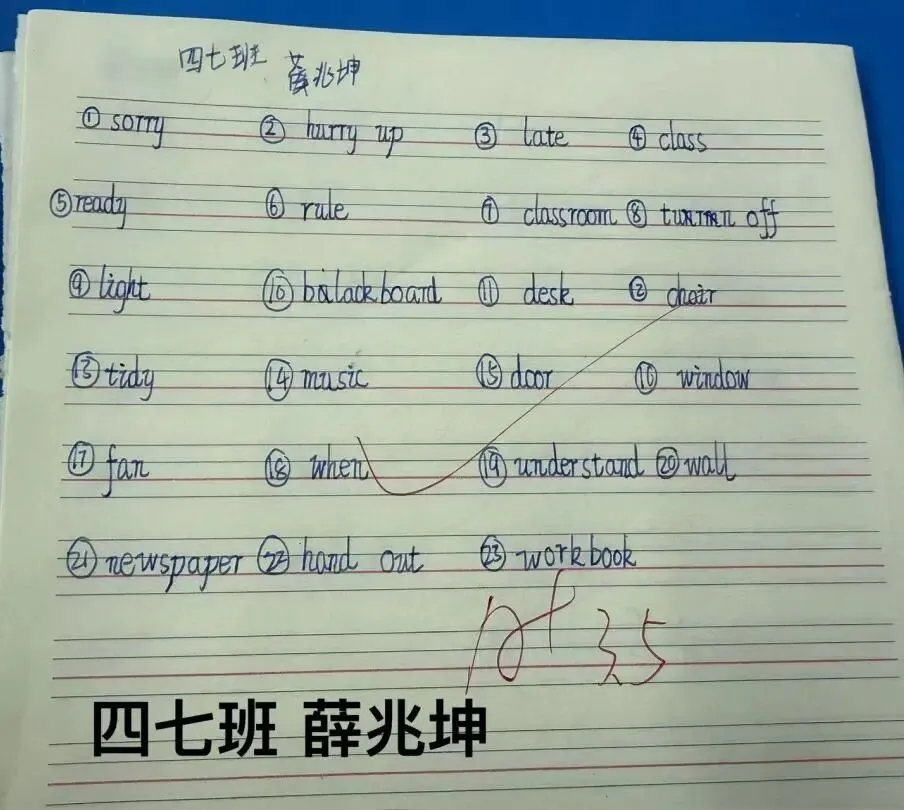 四七班 薛兆坤
① sorry ② hurry up ③ late ④ class
⑤ ready ⑥ rule ⑦ classroom ⑧ turn off
⑨ light ⑩ blackboard ⑪ desk ⑫ chair
⑬ tidy ⑭ music ⑮ door ⑯ window
⑰ fan ⑱ when ⑲ understand ⑳ wall
㉑ newspaper ㉒ hand out ㉓ workbook
A+ 3.5
四七班 薛兆坤